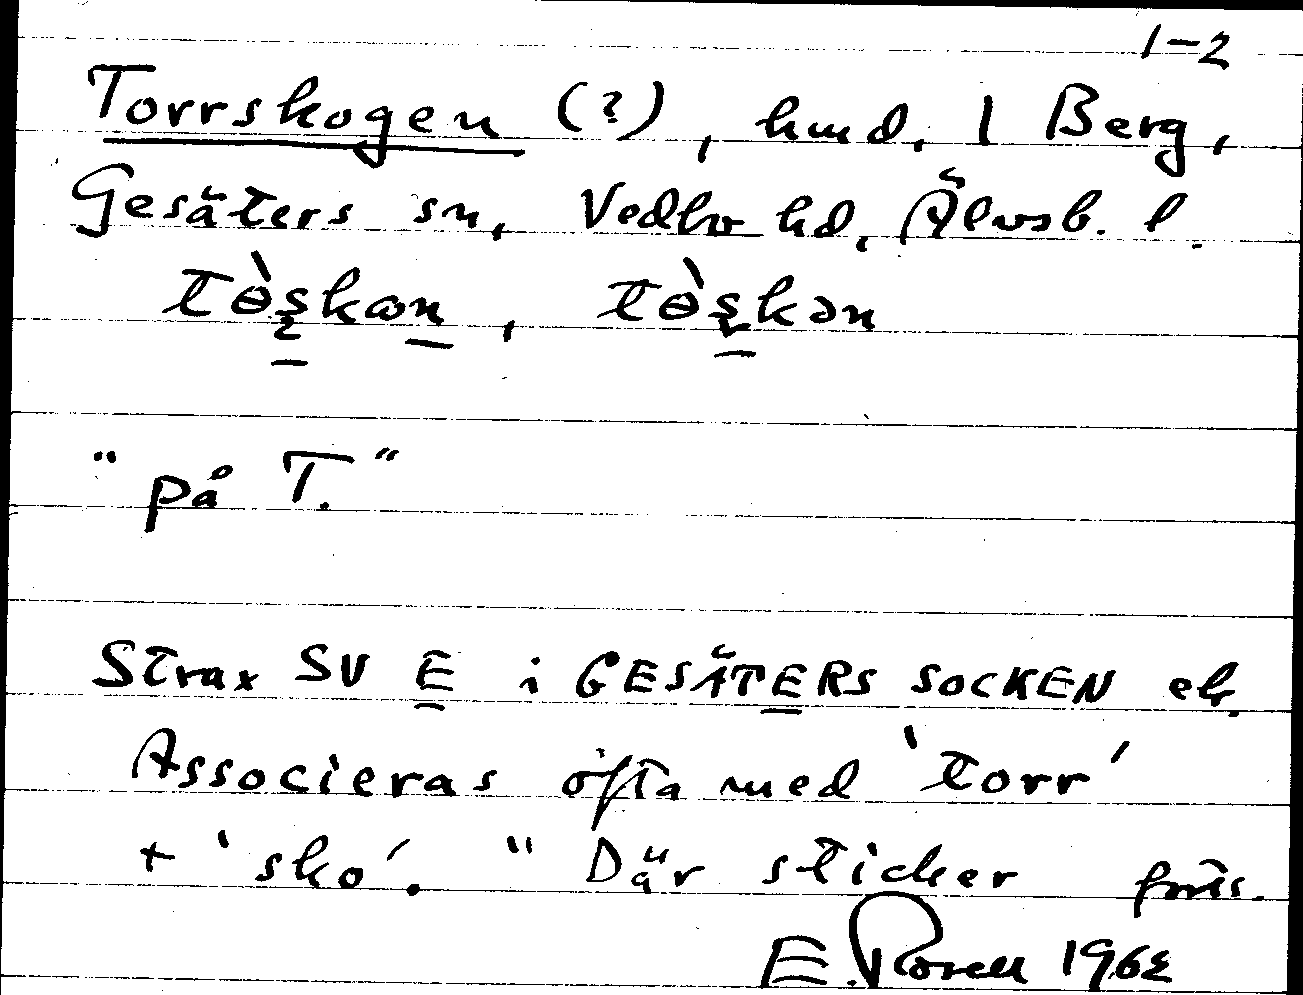 1-2
Torrskogen (?), hmd, 1 Berg,
Gesäters sn, Vedbo hd, Älvsb. l.
tɵ̀ʂkan, tɵ̀ʂkən
"på T."
Strax SV E i GESÄTERS SOCKEN ek.
Associeras ofta med 'torr'
+ 'sko'. "Där sticker forts.
E. Rosell 1962